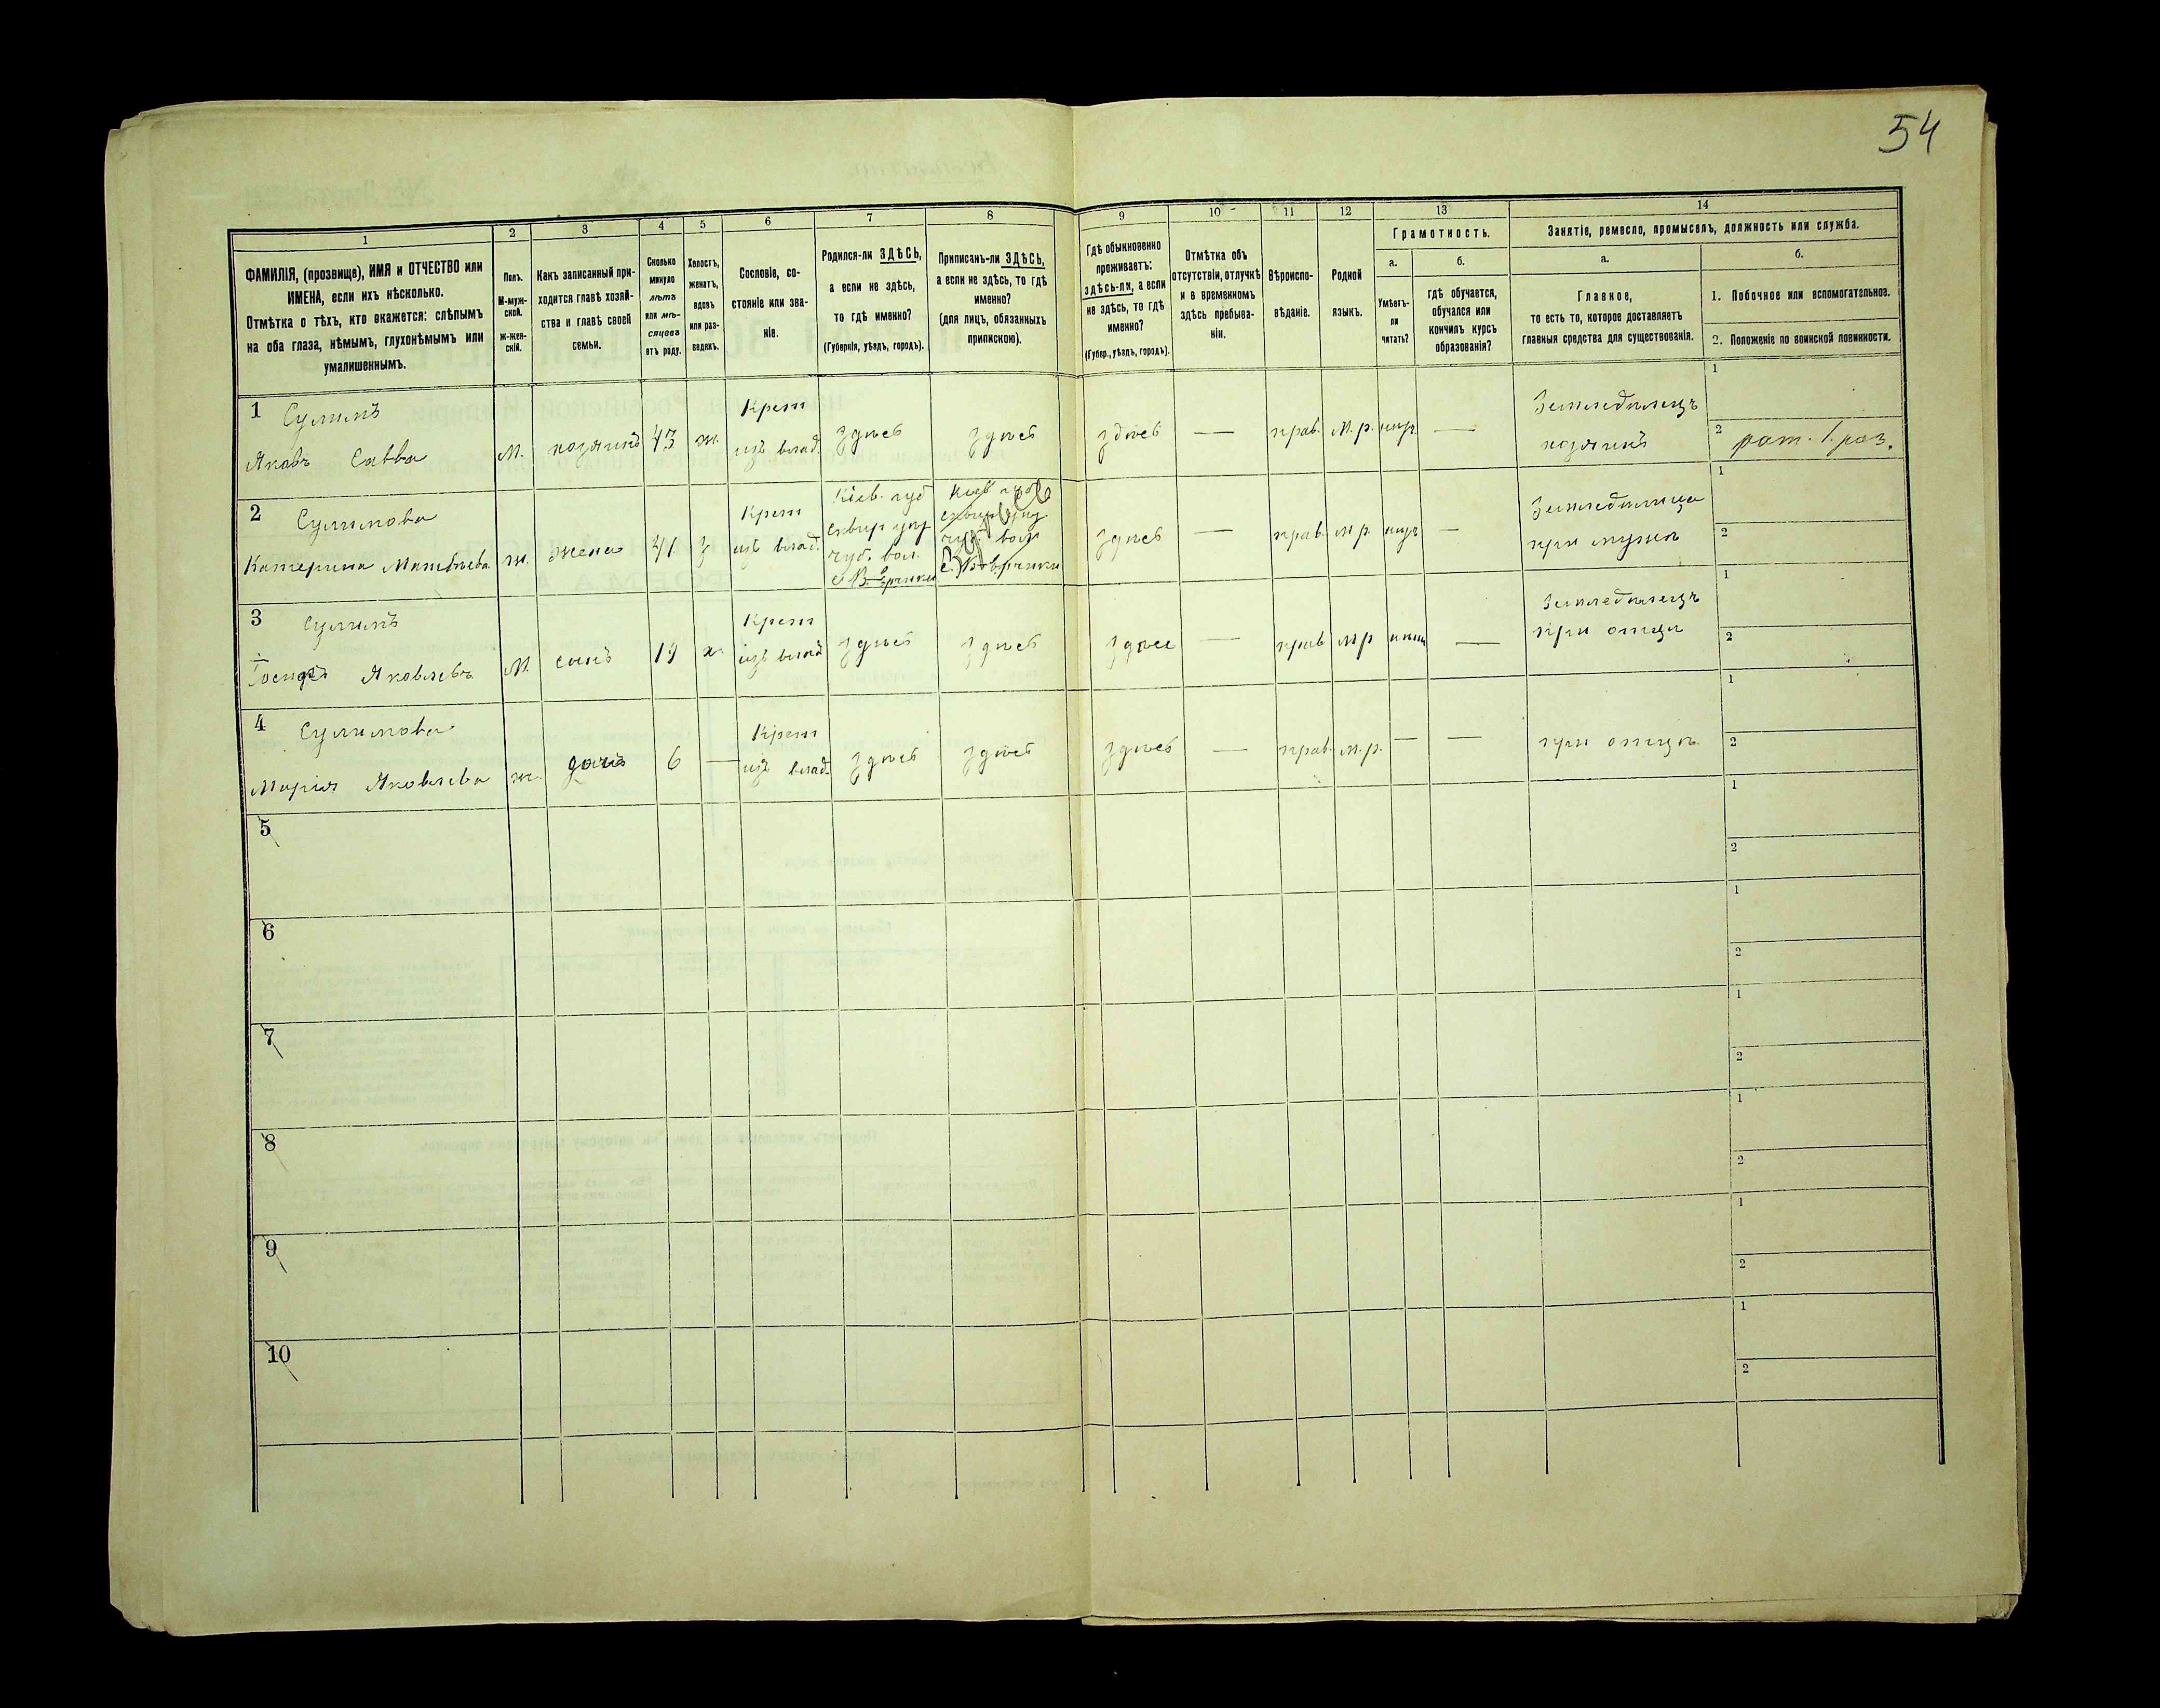 54
1
2
3
4
5
6
7
8
9
10
11
12
13
14
ФАМИЛІЯ, (прозвище), ИМЯ и ОТЧЕСТВО или
ИМЕНА, если ихъ нѣсколько.
Отмѣтка о тѣхъ, кто окажется: слѣпымъ
на оба глаза, нѣмымъ, глухонѣмымъ или
умалишеннымъ.
Полъ.
М-муж-
ской.
Ж-жен-
скій.
Какъ записанный при-
ходится главѣ хозяй-
ства и главѣ своей
семьи.
Сколько
минуло
лѣтъ
или мѣ-
сяцевъ
отъ роду.
Холостъ,
женатъ,
вдовъ
или раз-
веденъ.
Сословіе, со-
стояніе или зва-
ніе.
Родился-ли ЗДѢСЬ,
а если не здѣсь,
то гдѣ именно?
(Губернія, уѣздъ, городъ).
Приписанъ-ли ЗДѢСЬ,
а если не здѣсь, то гдѣ
именно?
(для лицъ, обязанныхъ
припискою).
Гдѣ обыкновенно
проживаетъ:
здѣсь-ли, а если
не здѣсь, то гдѣ
именно?
(Губер., уѣздъ, городъ).
Отмѣтка объ
отсутствіи, отлучкѣ
и о временномъ
здѣсь пребыва-
ніи.
Вѣроиспо-
вѣданіе.
Родной
языкъ.
Грамотность.
а.
Умѣетъ-
ли
читать?
б.
гдѣ обучается,
обучался или
кончилъ курсъ
образованія?
Занятіе, ремесло, промыселъ, должность или служба.
а.
Главное,
то есть то, которое доставляетъ
главныя средства для существованія.
б.
1. Побочное или вспомогательное.
2. Положеніе по воинской повинности.
1 Сулимъ
Яковъ Савва
М. хозяинъ 43 ж.
Крест
изъ влад.
здѣсь здѣсь здѣсь — прав. М. р. —
Земледѣлецъ
хозяинъ
1
2 рат. 1 раз.
2 Сулимова
Катерина Матвѣева
ж. жена 41 з
Крест
изъ влад.
Кіев. губ
Сквир уѣз
чуб. вол.
Кіев губ
Сквир уѣз.
чуб. вол
здѣсь — прав. м р. —
Земледѣлица
при мужѣ
1
2
3 Сулимъ
Іосифъ Яковлевъ
М. сынъ 19 х.
Крест
изъ влад
здѣсь здѣсь здѣсь — прав м р —
Земледѣлецъ
при отцѣ
1
2
4 Сулимова
Марія Яковлева
ж. дочь 6 —
Крест
изъ влад.
здѣсь здѣсь здѣсь — прав. м. р. — —
при отцѣ
1
2
5
1
2
6
1
2
7
1
2
8
1
2
9
1
2
10
1
2